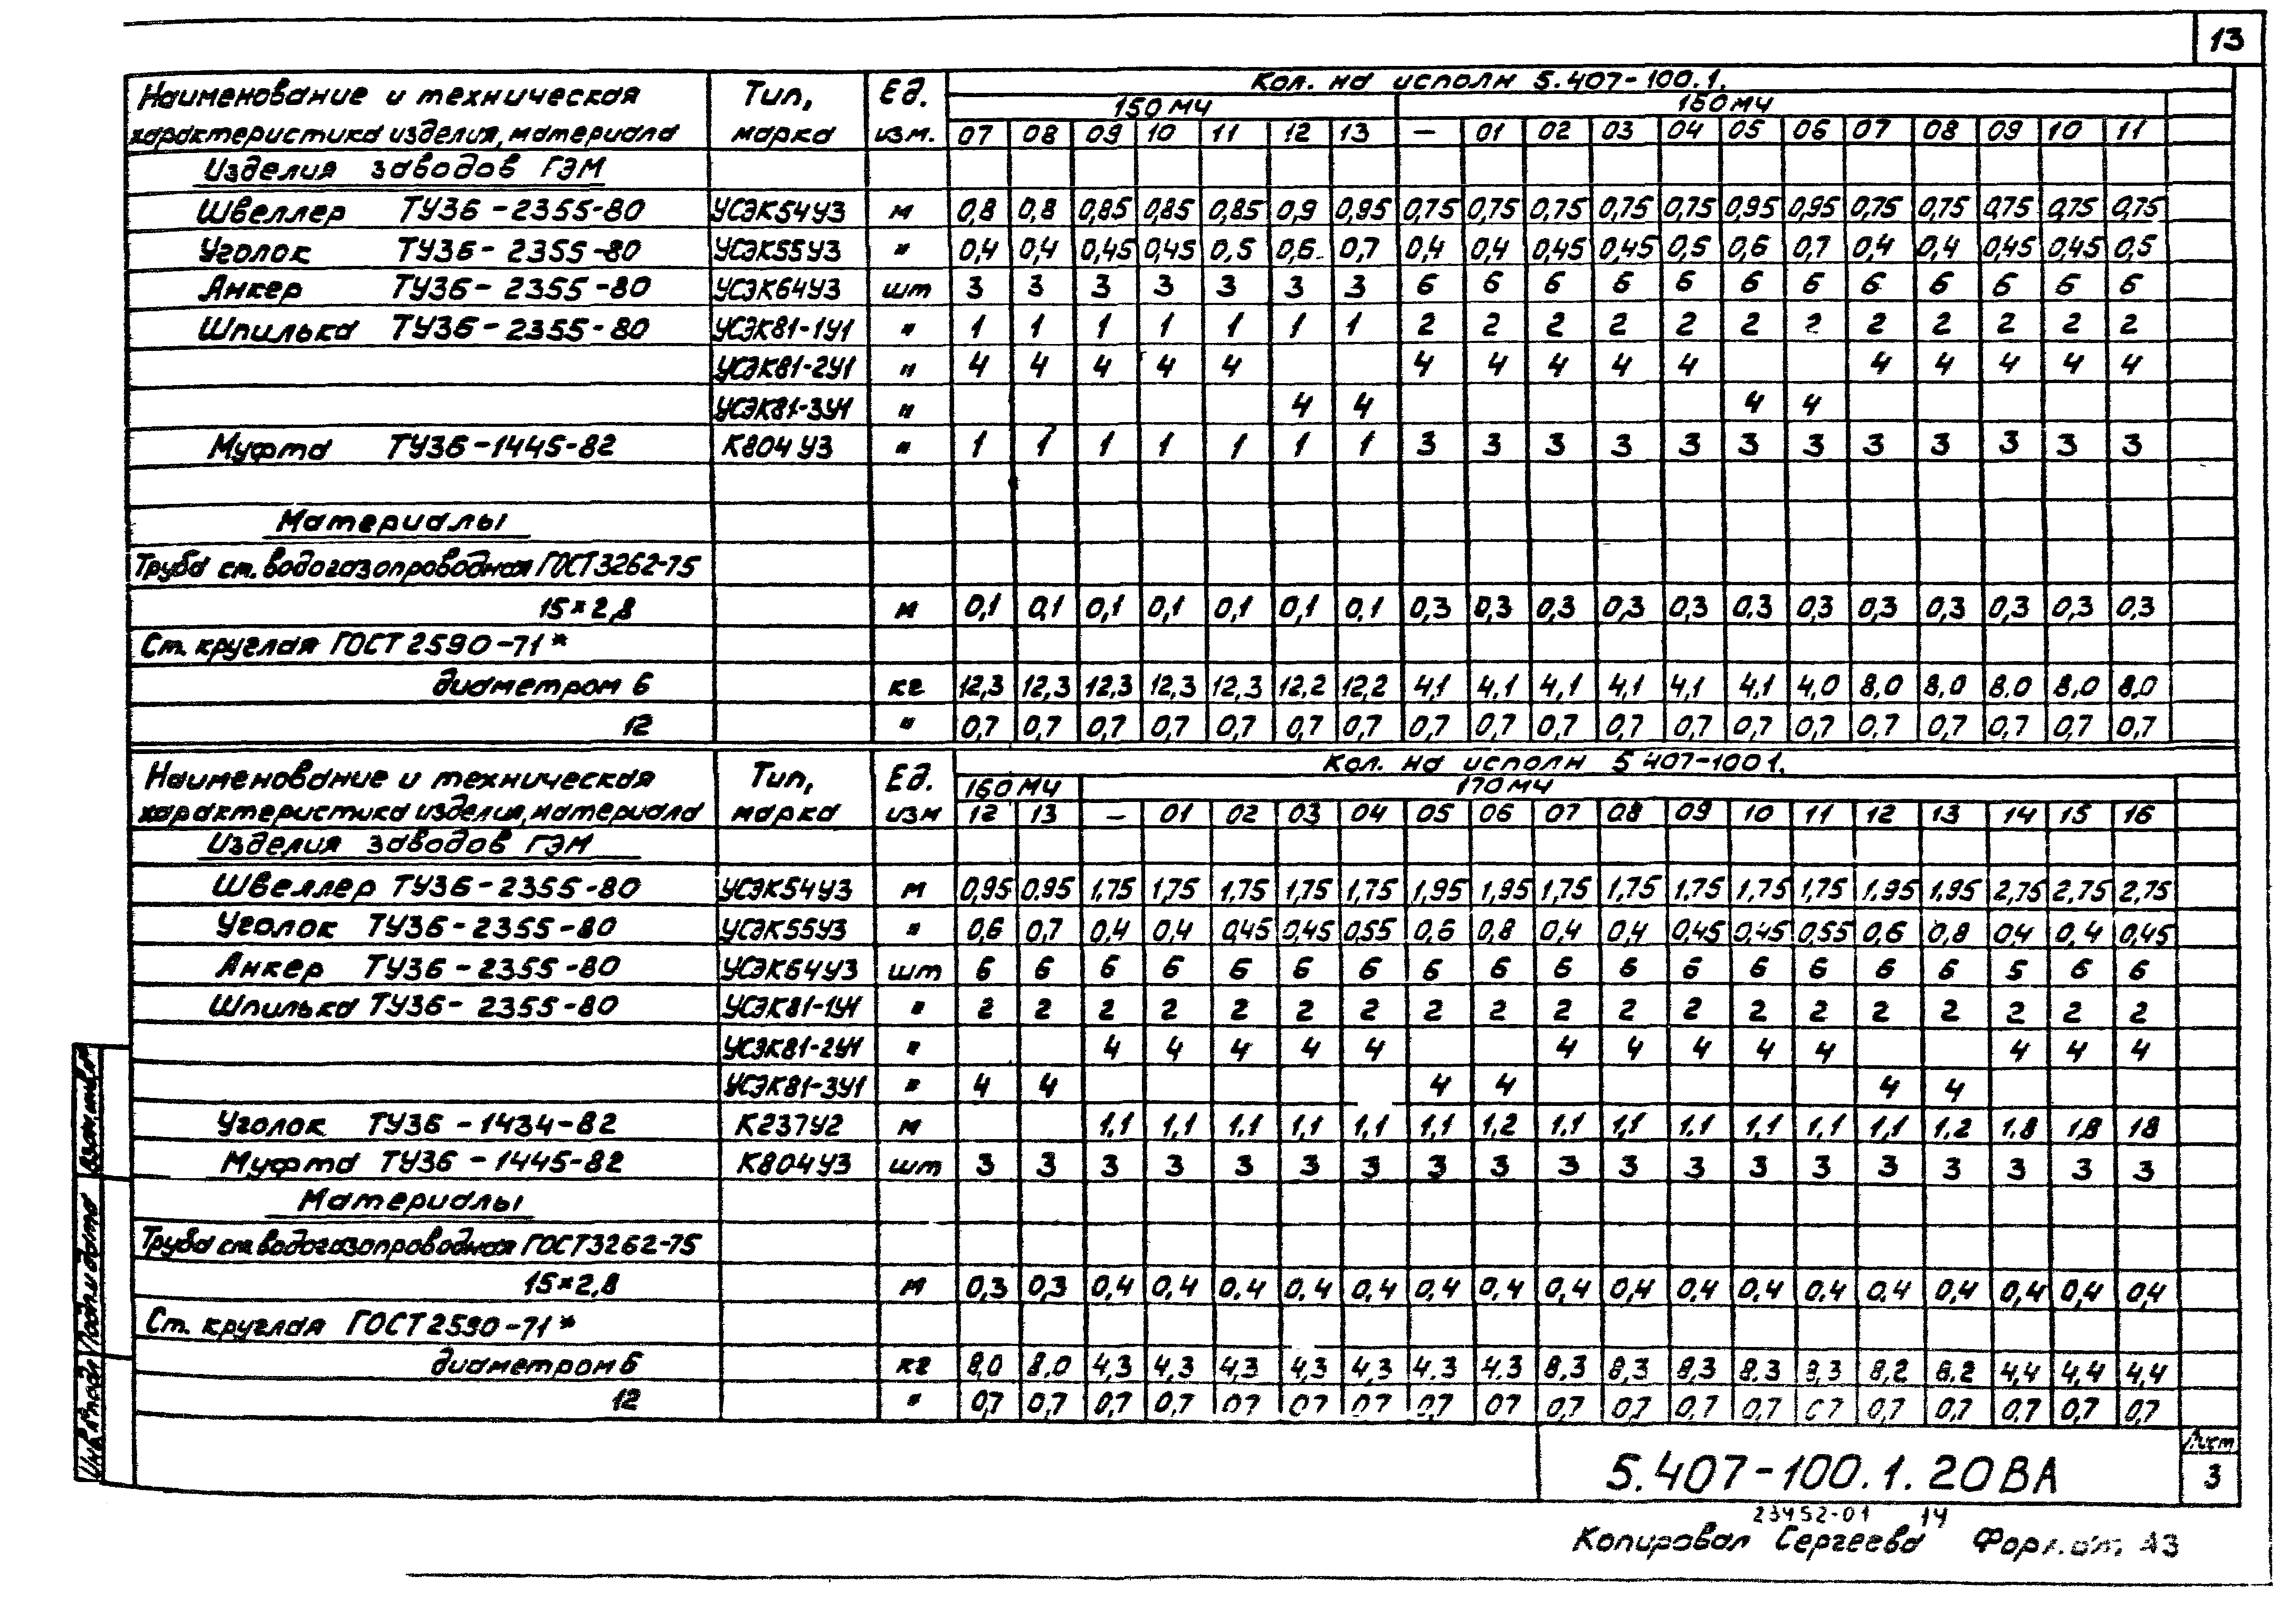 13
Наименование и техническая характеристика изделия, материала Тип, марка Ед. изм. Кол. на исполн 5.407-100.1.
150МЧ 160МЧ
07 08 09 10 11 12 13 — 01 02 03 04 05 06 07 08 09 10 11
Изделия заводов ГЭМ
Швеллер ТУ36-2355-80 УСЭК54У3 м 0,8 0,8 0,85 0,85 0,85 0,9 0,95 0,75 0,75 0,75 0,75 0,75 0,95 0,95 0,75 0,75 0,75 0,75 0,75
Уголок ТУ36-2355-80 УСЭК55У3 " 0,4 0,4 0,45 0,45 0,5 0,6 0,7 0,4 0,4 0,45 0,45 0,5 0,6 0,7 0,4 0,4 0,45 0,45 0,5
Анкер ТУ36-2355-80 УСЭК64У3 шт 3 3 3 3 3 3 3 6 6 6 6 6 6 6 6 6 6 6 6
Шпилька ТУ36-2355-80 УСЭК81-1У1 " 1 1 1 1 1 1 1 2 2 2 2 2 2 2 2 2 2 2 2
УСЭК81-2У1 " 4 4 4 4 4 4 4 4 4 4 4 4 4 4 4
УСЭК81-3У1 " 4 4 4 4
Муфта ТУ36-1445-82 К804У3 " 1 1 1 1 1 1 1 3 3 3 3 3 3 3 3 3 3 3 3
Материалы
Труба ст. водогазопроводная ГОСТ3262-75
15×2,8 м 0,1 0,1 0,1 0,1 0,1 0,1 0,1 0,3 0,3 0,3 0,3 0,3 0,3 0,3 0,3 0,3 0,3 0,3 0,3
Ст. круглая ГОСТ 2590-71*
диаметром 6 кг 12,3 12,3 12,3 12,3 12,3 12,2 12,2 4,1 4,1 4,1 4,1 4,1 4,1 4,0 8,0 8,0 8.0 8,0 8,0
12 " 0,7 0,7 0,7 0,7 0,7 0,7 0,7 0,7 0,7 0,7 0,7 0,7 0,7 0,7 0,7 0,7 0,7 0,7 0,7
Наименование и техническая характеристика изделия, материала Тип, марка Ед. изм Кол. на исполн 5 407-100 1.
160МЧ 170МЧ
12 13 — 01 02 03 04 05 06 07 08 09 10 11 12 13 14 15 16
Изделия заводов ГЭМ
Швеллер ТУ36-2355-80 УСЭК54У3 м 0,95 0,95 1,75 1,75 1,75 1,75 1,75 1,95 1,95 1,75 1,75 1,75 1,75 1,75 1,95 1,95 2,75 2,75 2,75
Уголок ТУ36-2355-80 УСЭК55У3 " 0,6 0,7 0,4 0,4 0,45 0,45 0,55 0,6 0,8 0,4 0,4 0,45 0,45 0,55 0,6 0,8 0,4 0,4 0,45
Анкер ТУ36-2355-80 УСЭК64У3 шт 6 6 6 6 6 6 6 6 6 6 6 6 6 6 6 6 6 6 6
Шпилька ТУ36-2355-80 УСЭК81-1У1 " 2 2 2 2 2 2 2 2 2 2 2 2 2 2 2 2 2 2 2
УСЭК81-2У1 " 4 4 4 4 4 4 4 4 4 4 4 4 4
УСЭК81-3У1 " 4 4 4 4 4 4
Уголок ТУ36-1434-82 К237У2 м 1,1 1,1 1,1 1,1 1,1 1,1 1,2 1,1 1,1 1,1 1,1 1,1 1,1 1,2 1,8 1,8 1,8
Муфта ТУ36-1445-82 К804У3 шт 3 3 3 3 3 3 3 3 3 3 3 3 3 3 3 3 3 3 3
Материалы
Труба ст. водогазопроводная ГОСТ3262-75
15×2,8 м 0,3 0,3 0,4 0,4 0,4 0,4 0,4 0,4 0,4 0,4 0,4 0,4 0,4 0,4 0,4 0,4 0,4 0,4 0,4
Ст. круглая ГОСТ 2590-71*
диаметром 6 кг 8,0 8,0 4,3 4,3 4,3 4,3 4,3 4,3 4,3 8,3 8,3 8,3 8,3 8,3 8,2 8,2 4,4 4,4 4,4
12 " 0,7 0,7 0,7 0,7 0,7 0,7 0,7 0,7 0,7 0,7 0,7 0,7 0,7 0,7 0,7 0,7 0,7 0,7 0,7
Инв.№подл Подп. и дата Взам.инв.№
5.407-100.1.20ВА
Лист
3
23452-01 14
Копировал Сергеева Формат А3